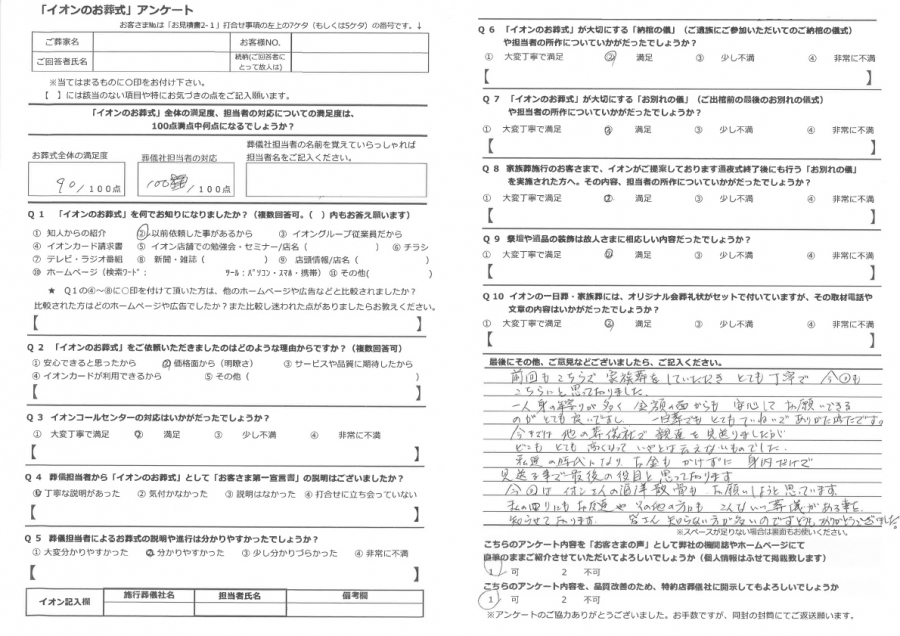 「イオンのお葬式」アンケート
お客さま№は「お見積書2-1」打合せ事項の左上の7ケタ（もしくは5ケタ）の番号です。↓
ご葬家名 お客様NO.
ご回答者氏名 続柄(ご回答者にとって故人は)
※当てはまるものに〇印をお付け下さい。
【　】には該当のない項目や特にお気づきの点をご記入願います。
「イオンのお葬式」全体の満足度、担当者の対応についての満足度は、
100点満点中何点になるでしょうか？
葬儀社担当者の名前を覚えていらっしゃれば
お葬式全体の満足度 葬儀社担当者の対応 担当者名をご記入ください。
90/100点 100 /100点
Q 1 「イオンのお葬式」を何でお知りになりましたか？（複数回答可。（　）内もお答え願います）
① 知人からの紹介 ② 以前依頼した事があるから ③ イオングループ従業員だから
④ イオンカード請求書 ⑤ イオン店舗での勉強会・セミナー/店名（　） ⑥ チラシ
⑦ テレビ・ラジオ番組 ⑧ 新聞・雑誌（　） ⑨ 店頭情報/店名（　）
⑩ ホームページ（検索ﾜｰﾄﾞ： ﾂｰﾙ：ﾊﾟｿｺﾝ・ｽﾏﾎ・携帯） ⑪ その他(　)
★ Q1の④～⑧に〇印を付けて頂いた方は、他のホームページや広告などと比較されましたか？
比較された方はどのホームページや広告でしたか？また比較し迷われた点がありましたらお教えください。
【　】
Q 2 「イオンのお葬式」をご依頼いただきましたのはどのような理由からですか？（複数回答可）
① 安心できると思ったから ② 価格面から（明瞭さ） ③ サービスや品質に期待したから
④ イオンカードが利用できるから ⑤ その他（　）
【　】
Q 3 イオンコールセンターの対応はいかがだったでしょうか？
① 大変丁寧で満足 ② 満足 ③ 少し不満 ④ 非常に不満
【　】
Q 4 葬儀担当者から「イオンのお葬式」として「お客さま第一宣言書」の説明はございましたか？
① 丁寧な説明があった ② 気がかなかった ③ 説明はなかった ④ 打合せに立ち会っていない
【　】
Q 5 葬儀担当者によるお葬式の説明や進行は分かりやすかったでしょうか？
① 大変分かりやすかった ② 分かりやすかった ③ 少し分かりづらかった ④ 非常に不満
【　】
イオン記入欄 施行葬儀社名 担当者氏名 備考欄
Q 6 「イオンのお葬式」が大切にする「納棺の儀」（ご遺族にご参加いただいてのご納棺の儀式）
や担当者の所作についていかがだったでしょうか？
① 大変丁寧で満足 ② 満足 ③ 少し不満 ④ 非常に不満
【　】
Q 7 「イオンのお葬式」が大切にする「お別れの儀」（ご出棺前の最後のお別れの儀式）
や担当者の所作についていかがだったでしょうか？
① 大変丁寧で満足 ② 満足 ③ 少し不満 ④ 非常に不満
【　】
Q 8 家族葬施行のお客さまで、イオンがご提案しております通夜式終了後にも行う「お別れの儀」
を実施された方へ。その内容、担当者の所作についていかがだったでしょうか？
① 大変丁寧で満足 ② 満足 ③ 少し不満 ④ 非常に不満
【　】
Q 9 祭壇や遺品の装飾は故人さまに相応しい内容だったでしょうか？
① 大変丁寧で満足 ② 満足 ③ 少し不満 ④ 非常に不満
【　】
Q 10 イオンの一日葬・家族葬には、オリジナル会葬礼状がセットで付いていますが、その取材電話や
文章の内容はいかがだったでしょうか？
① 大変丁寧で満足 ② 満足 ③ 少し不満 ④ 非常に不満
【　】
最後にその他、ご意見などございましたら、ご記入ください。
前回もこちらで 家族葬をしていただき とても丁寧で 今回も
こちらにと思っておりました。
一人身の年寄りが多く 金額の面からも 安心して お願いできる
のがとても良いですし、一日葬でもとてもていねいでありがたかったです。
今までは 他の葬儀社で 親達を見送りましたが
どこも とても高くなって いいとは言えないものでした。
私達の時代になり お金もかけずに 身内だけで
見送る事で最後の役目と思っております
今回は イオンさんの海洋散骨も お願いしようと思っています。
私の回りにも お友達や その他の方にも こんないい葬儀がある事を
知らせております。 皆さん 知らない方が多いのですよ ありがとうございました。
※スペースが足りない場合は裏面もお使いください。
こちらのアンケート内容を「お客さまの声」として弊社の機関誌やホームページにて
直筆のままご紹介させていただいてよろしいでしょうか（個人情報はふせて掲載致します）
1 可 2 不可
こちらのアンケート内容を、品質改善のため、特約店葬儀社に開示してもよろしいでしょうか
1 可 2 不可
※アンケートのご協力ありがとうございました。お手数ですが、同封の封筒にてご返送願います。